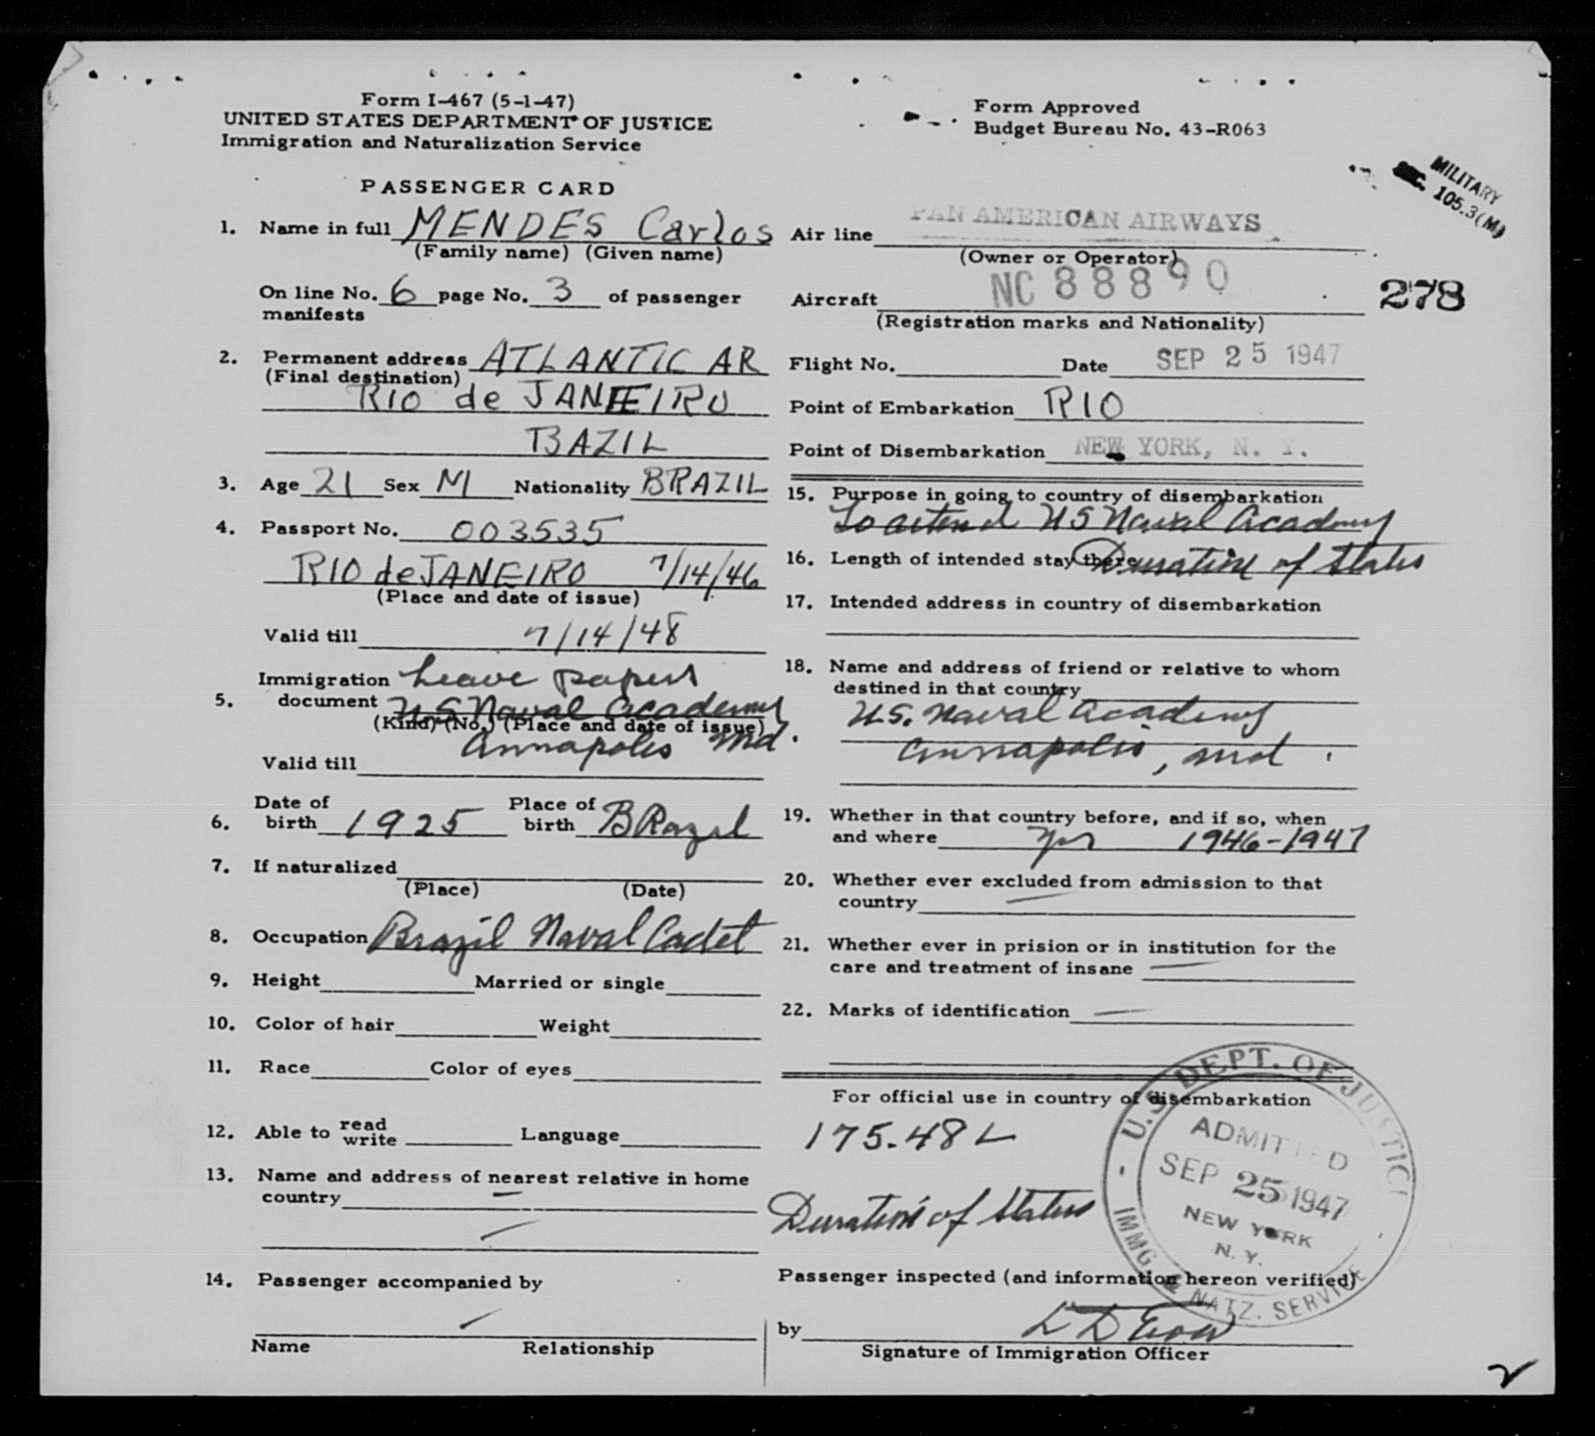 Form I-467 (5-1-47)
UNITED STATES DEPARTMENT OF JUSTICE
Immigration and Naturalization Service
Form Approved
Budget Bureau No. 43-R063
MILITARY
SEC. 105.3(M)
PASSENGER CARD
1. Name in full MENDES Carlos
(Family name) (Given name)
On line No. 6 page No. 3 of passenger
manifests
2. Permanent address ATLANTIC AR
(Final destination)
RIO de JANEEIRO
BAZIL
3. Age 21 Sex M Nationality BRAZIL
4. Passport No. 003535
RIO de JANEIRO 7/14/46
(Place and date of issue)
Valid till 7/14/48
Immigration Leave papers
5. document U S Naval Academy
(Kind) (No.) (Place and date of issue)
Annapolis Md.
Valid till
Date of Place of
6. birth 1925 birth BRazil
7. If naturalized
(Place) (Date)
8. Occupation Brazil Naval Cadet
9. Height Married or single
10. Color of hair Weight
11. Race Color of eyes
12. Able to read write Language
13. Name and address of nearest relative in home
country —
—
14. Passenger accompanied by
—
Name Relationship
Air line PAN AMERICAN AIRWAYS
(Owner or Operator)
Aircraft NC 88890
(Registration marks and Nationality)
278
Flight No. Date SEP 25 1947
Point of Embarkation RIO
Point of Disembarkation NEW YORK, N. Y.
15. Purpose in going to country of disembarkation
To attend US Naval Academy
16. Length of intended stay there Duration of Status
17. Intended address in country of disembarkation
18. Name and address of friend or relative to whom
destined in that country
U.S. Naval Academy
Annapolis, Md.
19. Whether in that country before, and if so, when
and where yes 1946-1947
20. Whether ever excluded from admission to that
country —
21. Whether ever in prision or in institution for the
care and treatment of insane —
22. Marks of identification —
For official use in country of disembarkation
175.48 L
Duration of Status
U.S. DEPT. OF JUSTICE
ADMITTED
SEP 25 1947
NEW YORK
N. Y.
IMMG. & NATZ. SERVICE
Passenger inspected (and information hereon verified)
by
Signature of Immigration Officer
2